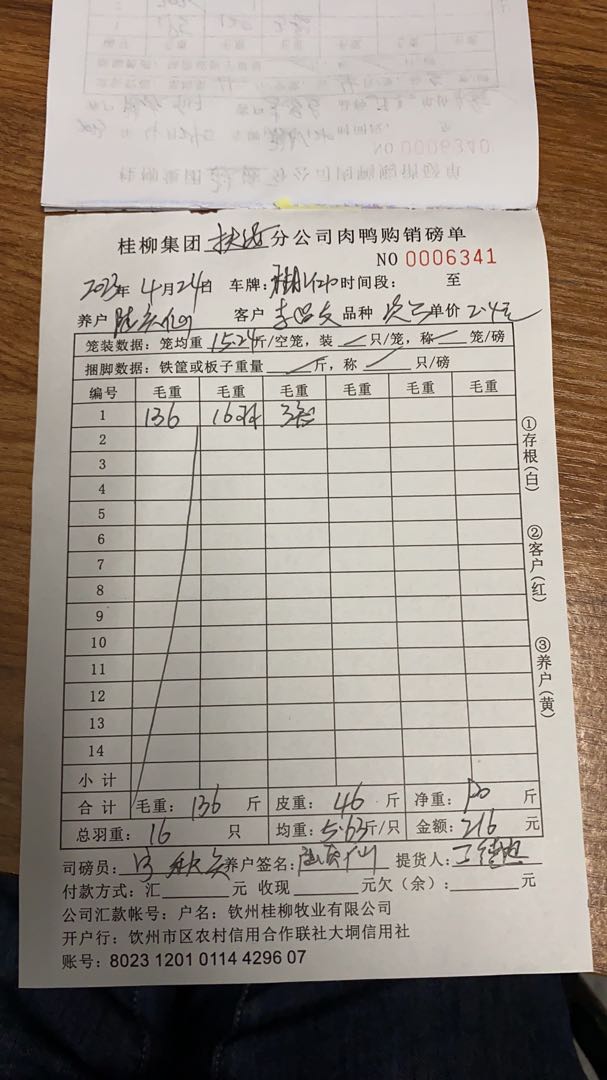 NO 0006340
桂柳集团 分公司肉鸭购销磅单
NO 0006341
2023年 4月24日 车牌: 时间段: 至
养户 客户 品种 单价 2.4元
笼装数据: 笼均重 15.24斤/空笼, 装 只/笼, 称 笼/磅
捆脚数据: 铁筐或板子重量 斤, 称 只/磅
编号 毛重 毛重 毛重 毛重 毛重 毛重
1 136 16只 3笼
2
3
4
5
6
7
8
9
10
11
12
13
14
小计
合计 毛重: 136 斤 皮重: 46 斤 净重: 90 斤
总羽重: 16 只 均重: 5.63斤/只 金额: 216 元
司磅员: 养户签名: 提货人:
付款方式: 汇 元 收现 元欠(余): 元
公司汇款帐号: 户名: 钦州桂柳牧业有限公司
开户行: 钦州市区农村信用合作联社大垌信用社
账号: 8023 1201 0114 4296 07
①存根(白)
②客户(红)
③养户(黄)